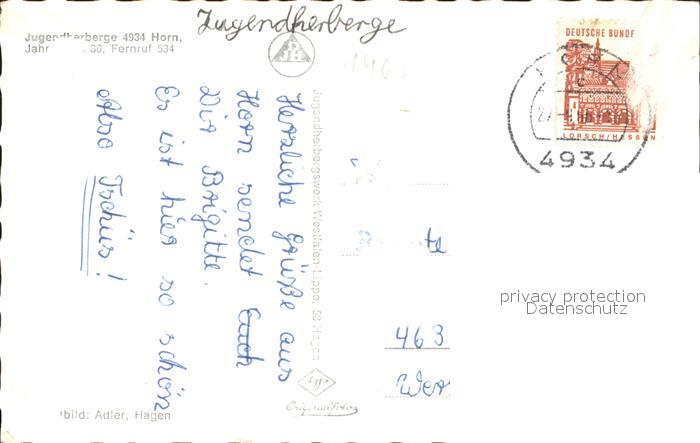 Jugendherberge
Jugendherberge 4934 Horn,
Jahr 36, Fernruf 534
Herzliche Grüße aus
Horn sendet Euch
Dir Brigitte.
Es ist hier so schön
Also Tschüs!
Jugendherbergswerk Westfalen-Lippe, 58 Hagen
DEUTSCHE BUNDESPOST
LORSCH/HESSEN
4934
te
463
privacy protection
Datenschutz
Originalfoto
bild: Adler, Hagen